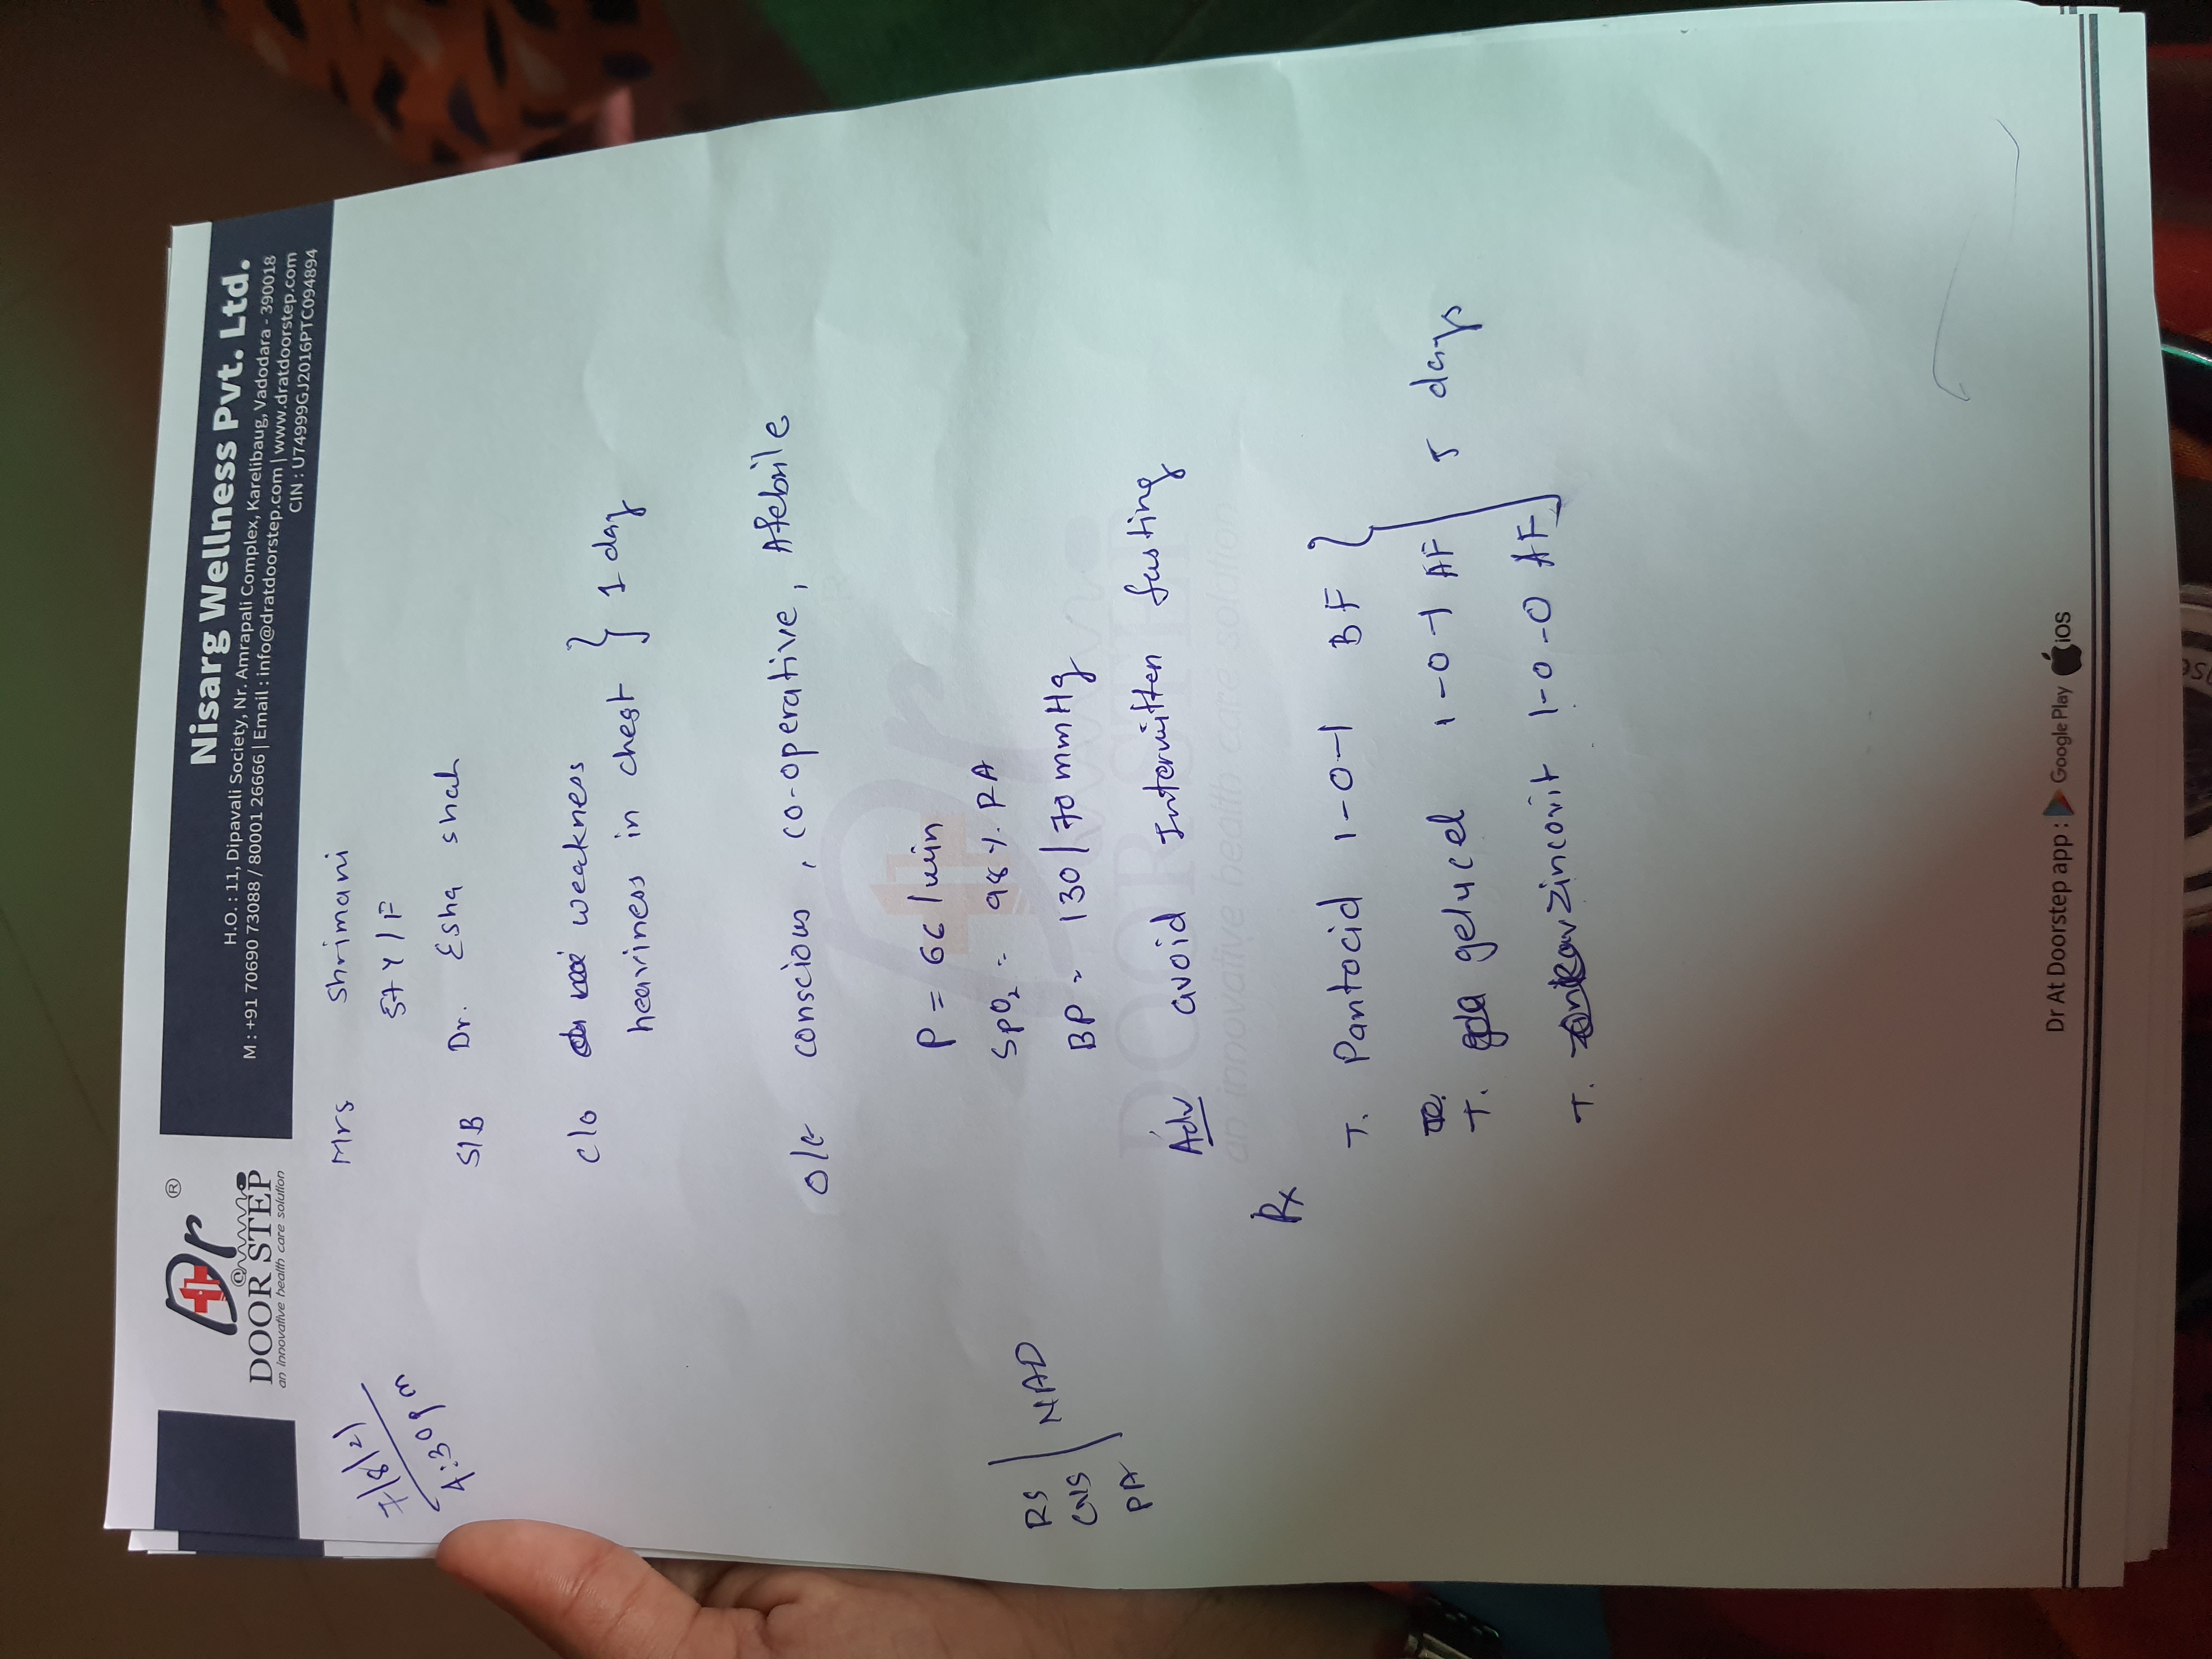 Dr ®
@
DOOR STEP
an innovative health care solution
Nisarg Wellness Pvt. Ltd.
H.O. : 11, Dipavali Society, Nr. Amrapali Complex, Karelibaug, Vadodara - 390018
M : +91 70690 73088 / 80001 26666 | Email : info@dratdoorstep.com | www.dratdoorstep.com
CIN : U74999GJ2016PTC094894
7/8/21
4:30pm
Mrs Shrimani
57Y/F
S/B Dr. Esha shah
c/o weakness
heaviness in chest } 1 day
O/E conscious, co-operative, Afebrile
P = 66/min
SpO2 = 98% RA
BP = 130/70 mmHg
RS
CNS NAD
PA
Adv avoid Intermitten fasting
Rx
T. Pantocid 1-0-1 BF
T. gelucel 1-0-1 AF 5 days
T. zincovit 1-0-0 AF
Dr
DOOR STEP
an innovative health care solution
Dr At Doorstep app : Google Play iOS